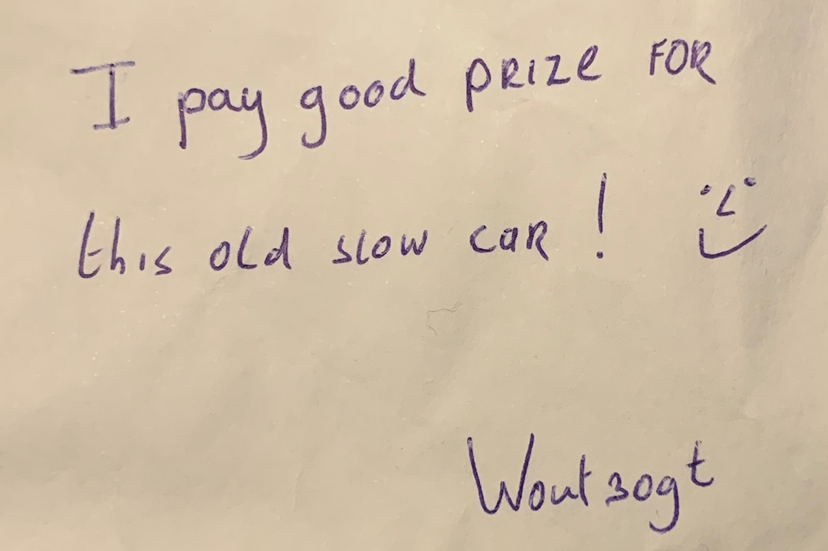 I pay good PRIZE FOR
this old slow car!
Wout30gt